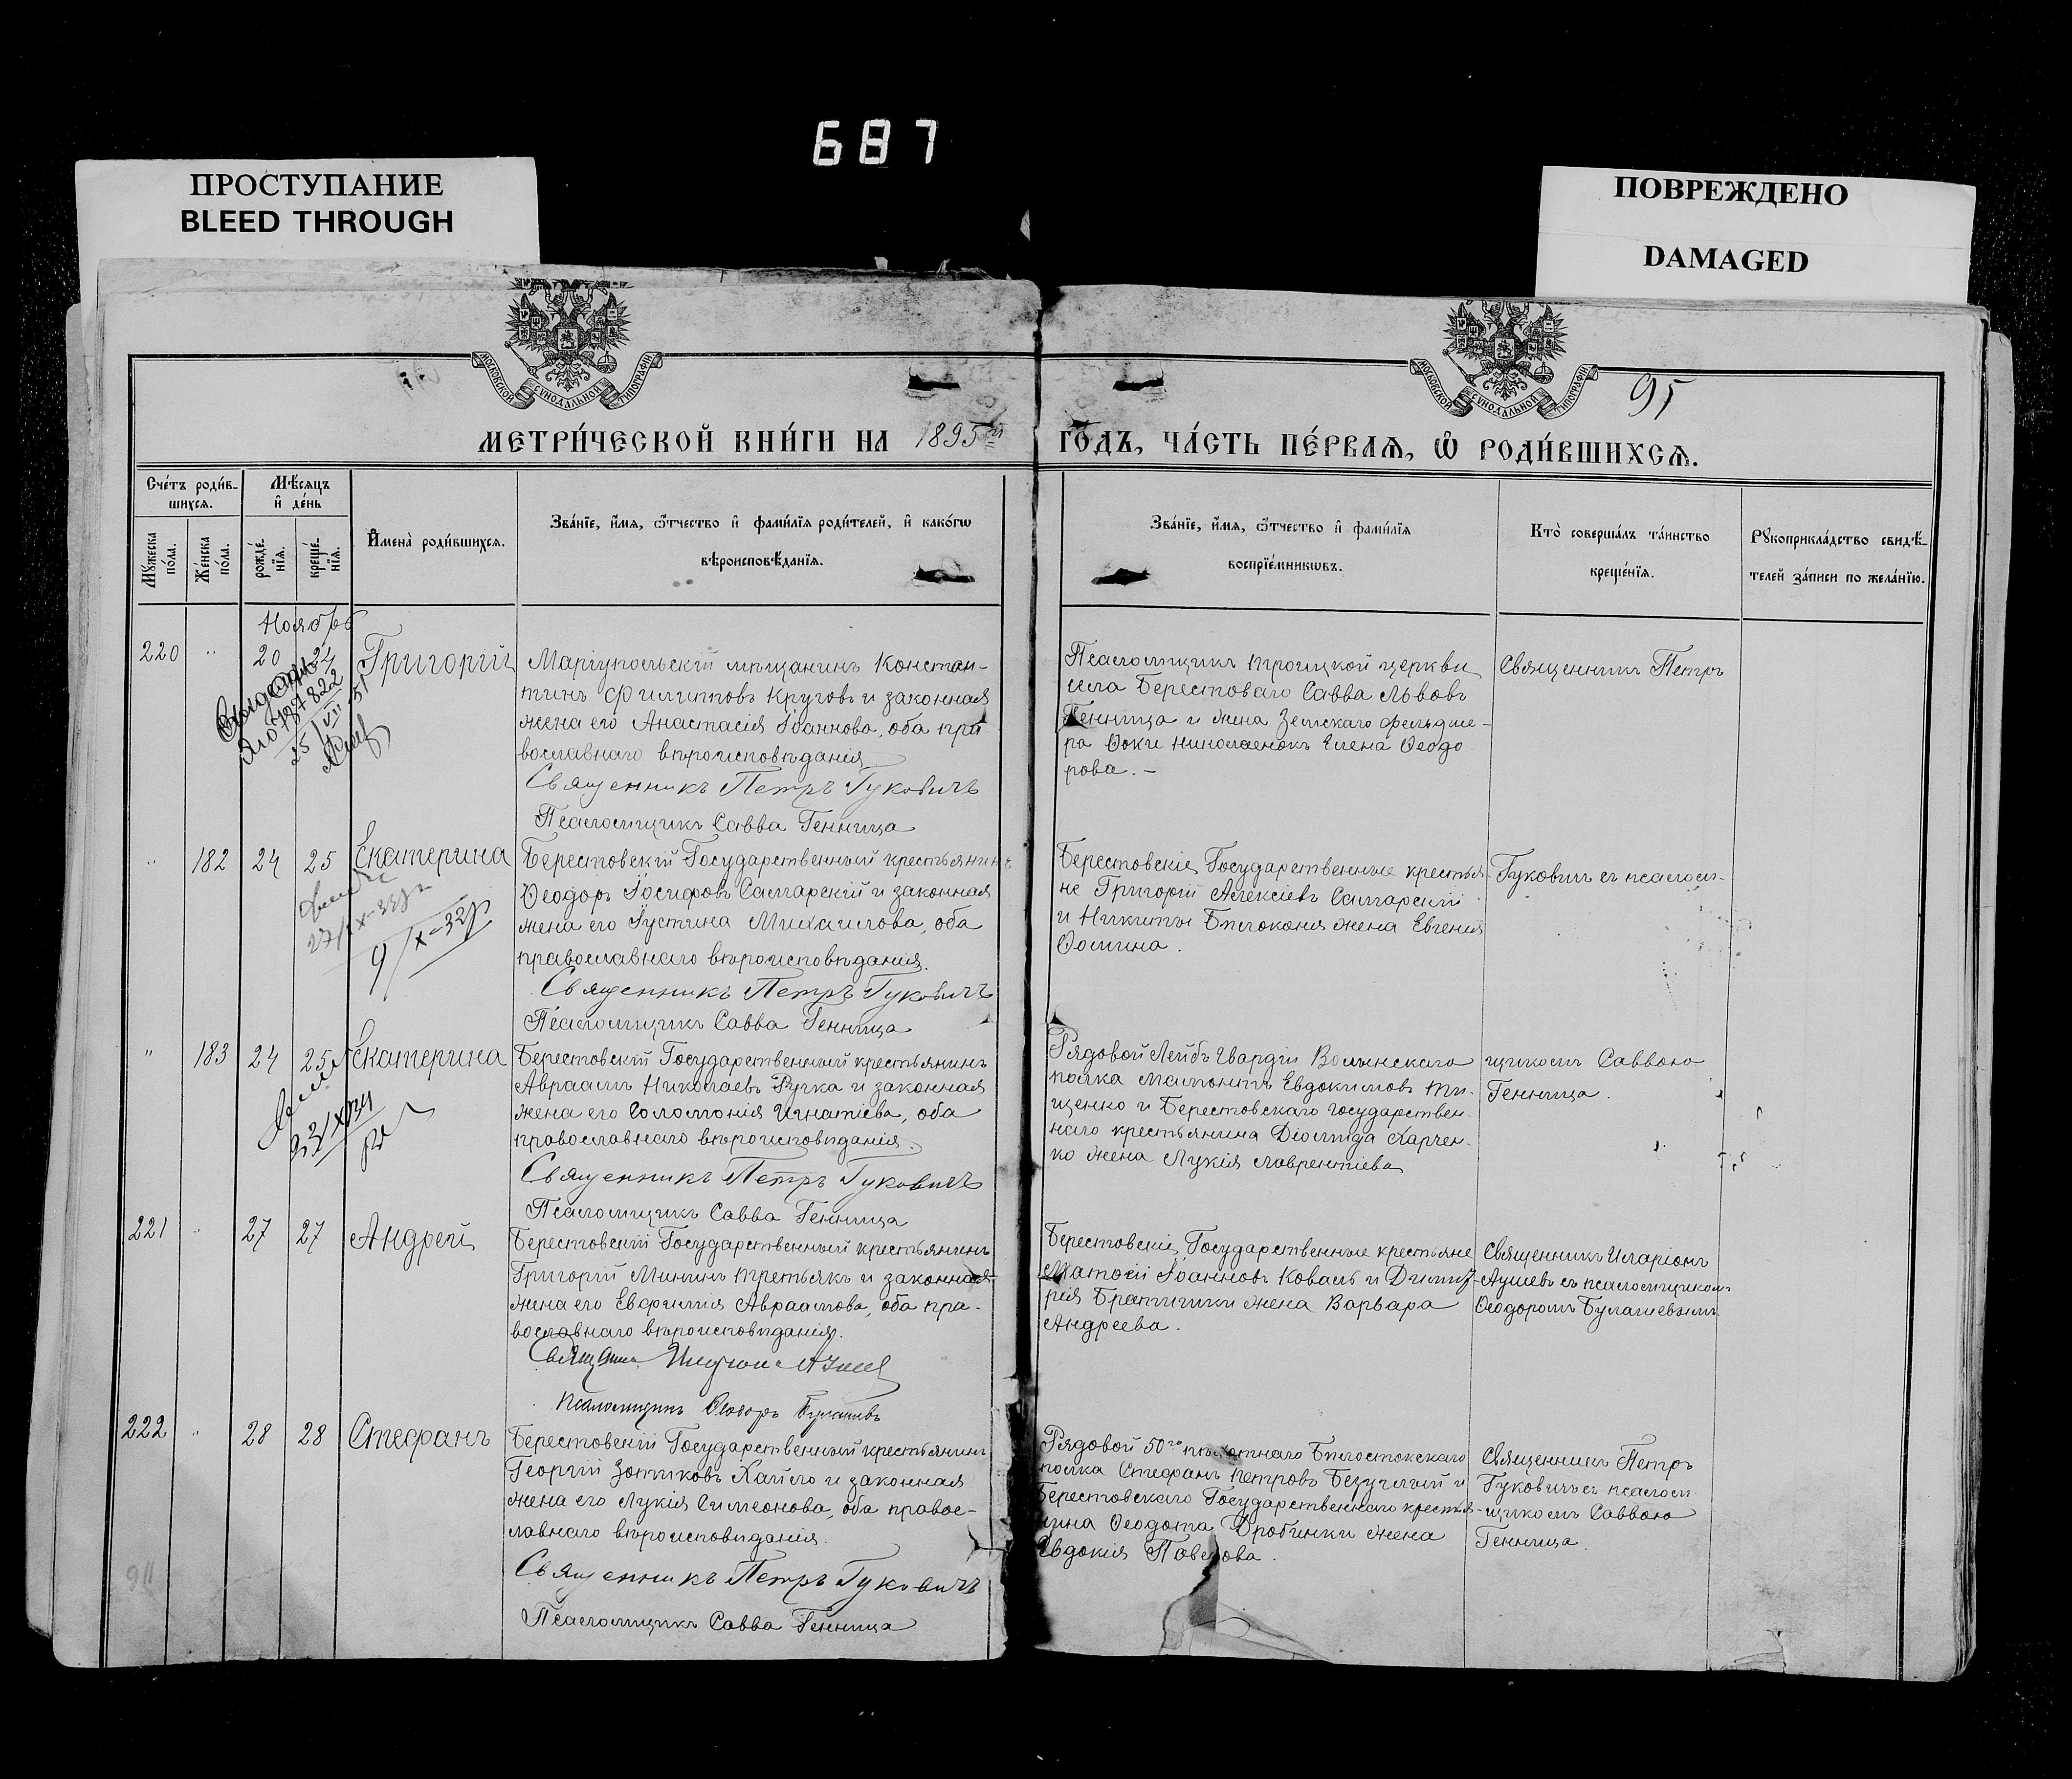 687
ПРОСТУПАНИЕ
BLEED THROUGH
ПОВРЕЖДЕНО
DAMAGED
МОСКОВСКОЙ СУНОДАЛЬНОЙ ТИПОГРАФІИ
МОСКОВСКОЙ СУНОДАЛЬНОЙ ТИПОГРАФІИ
95
МЕТРИ́ЧЕСКОЙ КНИ́ГИ НА 1895й ГО́ДЪ, ЧА́СТЬ ПЕ́РВАѦ, Ѡ҆ РОДИ́ВШИХСѦ.
Сче́тъ роди́в-
шихсѧ.
Мѣ́сѧцъ
и҆ де́нь
Мꙋ́жеска по́ла.
Же́нска по́ла.
рожде́нїѧ.
креще́нїѧ.
И҆мена̀ роди́вшихсѧ.
Зва́нїе, и҆́мѧ, ѻ҆́тчество и҆ фами́лїѧ роди́телей, и҆ како́гѡ
вѣроисповѣ́данїѧ.
Зва́нїе, и҆́мѧ, ѻ҆́тчество и҆ фами́лїѧ
воспрїе́мникѡвъ.
Кто̀ соверша́лъ та́инство
креще́нїѧ.
Рꙋкоприкла́дство свидѣ́-
телей за́писи по жела́нїю.
Ноябрь
220 " 20 24 Григорій
Маріупольскій мѣщанинъ Констан-
тинъ Филипповъ Круговъ и законная
жена его Анастасія Іоаннова, оба пра
вославнаго вѣроисповѣданія
Священникъ Петръ Гуковичъ
Псаломщикъ Савва Генница
Псаломщикъ Троицкой церкви
села Берестоваго Савва Львовъ
Генница и жена Земскаго фельдше-
ра Ѳоки Николаенокъ Елена Ѳеодо
рова. –
Священникъ Петръ
25/VII 51
" 182 24 25 Екатерина
27/IX-33г
9/X-33г
Берестовскій Государственный крестьянинъ
Ѳеодоръ Іосифовъ Самарскій и законная
жена его Іустина Михаилова, оба
православнаго вѣроисповѣданія.
Священникъ Петръ Гуковичъ
Псаломщикъ Савва Генница
Берестовскіе Государственные крестья
не Григорій Алексіевъ Самарскій
и Никиты Бѣлоконя жена Евгенія
Ѳомина.
Гуковичъ съ псалом-
" 183 24 25 Екатерина
Берестовскій Государственный крестьянинъ
Авраамъ Николаевъ Ручка и законная
жена его Соломонія Игнатіева, оба
православнаго вѣроисповѣданія.
Священникъ Петръ Гуковичъ
Псаломщикъ Савва Генница
Рядовой Лейбъ Гвардіи Волынскаго
полка Мамонтъ Евдокимовъ Ти-
щенко и Берестовскаго Государствен-
наго крестьянина Діомида Харчен-
ко жена Лукія Лаврентіева
щикомъ Саввою
Генница.
221 " 27 27 Андрей
Берестовскій Государственный крестьянинъ
Григорій Мининъ Третьякъ и законная
жена его Евфимія Авраамова, оба пра-
вославнаго вѣроисповѣданія.
Псаломщикъ Ѳеодоръ
Берестовскіе Государственные крестьяне
Матѳій Іоанновъ Коваль и Димит-
рія Братишки жена Варвара
Андреева.
Священникъ Иларіонъ
съ псаломщикомъ
Ѳеодоромъ
222 " 28 28 Стефанъ
Берестовскій Государственный крестьянинъ
Георгій Зотиковъ Хайло и законная
жена его Лукія Симеонова, оба правос-
лавнаго вѣроисповѣданія.
Священникъ Петръ Гуковичъ
Псаломщикъ Савва Генница
Рядовой 50го пѣхотнаго Бѣлостокскаго
полка Стефанъ Петровъ Безуглый и
Берестовскаго Государственнаго крестья-
нина Ѳеодота Дробинки жена
Евдокія Павлова.
Священникъ Петръ
Гуковичъ съ псалом-
щикомъ Саввою
Генница.